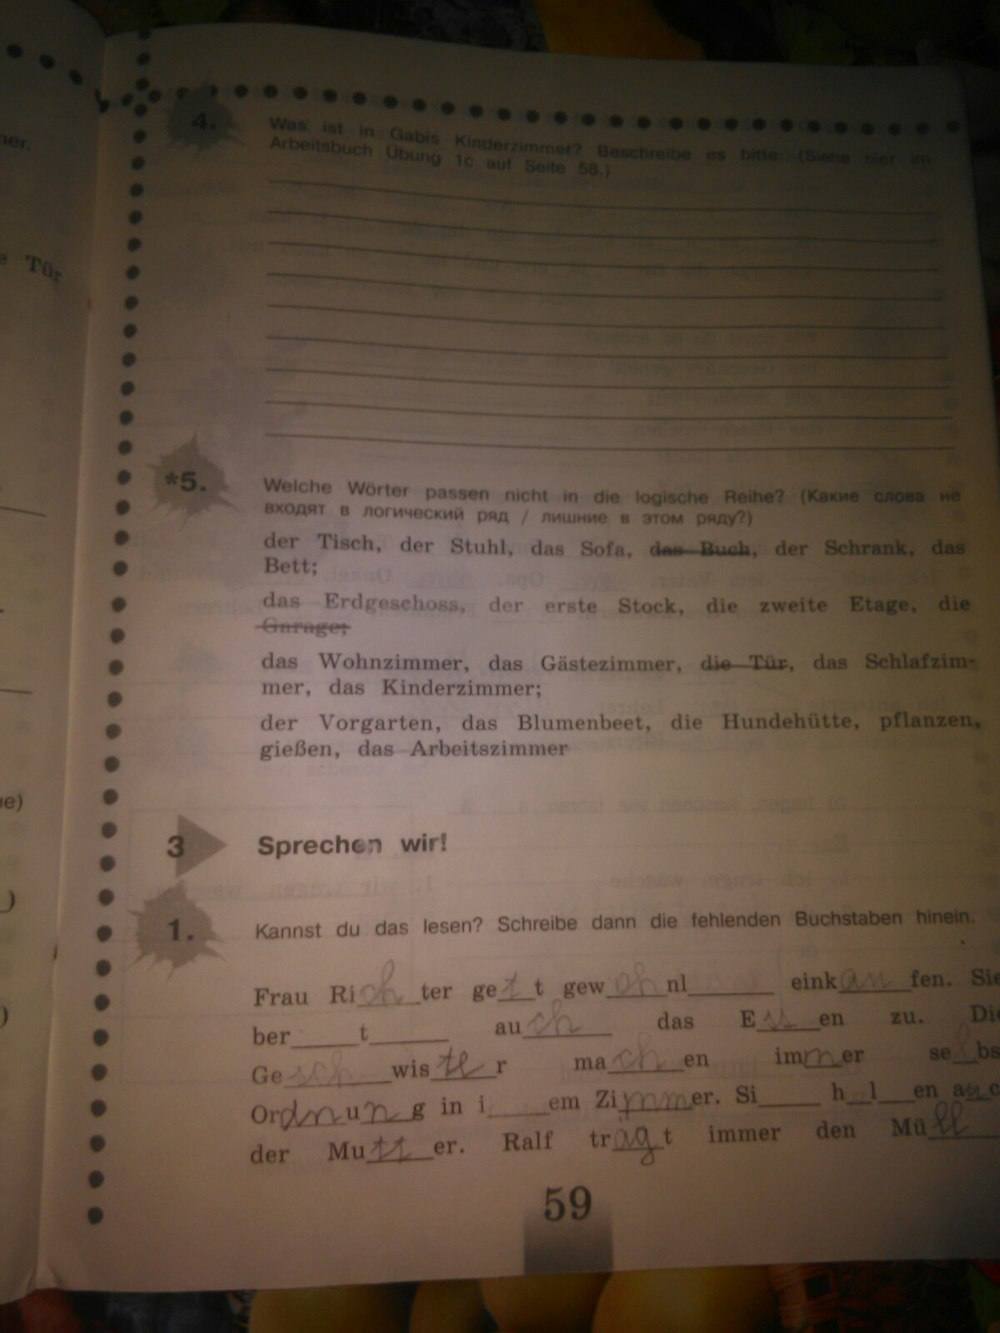 4.
Was ist in Gabis Kinderzimmer? Beschreibe es bitte. (Siehe hier im
Arbeitsbuch Übung 1c auf Seite 58.)
Tür
*5.
Welche Wörter passen nicht in die logische Reihe? (Какие слова не
входят в логический ряд / лишние в этом ряду?)
der Tisch, der Stuhl, das Sofa, das Buch, der Schrank, das
Bett;
das Erdgeschoss, der erste Stock, die zweite Etage, die
Garage;
das Wohnzimmer, das Gästezimmer, die Tür, das Schlafzim-
mer, das Kinderzimmer;
der Vorgarten, das Blumenbeet, die Hundehütte, pflanzen,
gießen, das Arbeitszimmer
3 Sprechen wir!
1.
Kannst du das lesen? Schreibe dann die fehlenden Buchstaben hinein.
Frau Richter ge t t gew oh nl____ eink au fen. Sie
ber____t____ au ch das E ss en zu. Die
Ge sch wis te r ma ch en im m er se l bs
Or dn u n g in i____em Zi mm er. Si____ h__l__en auc
der Mu tt er. Ralf tr äg t immer den Mü ll
59